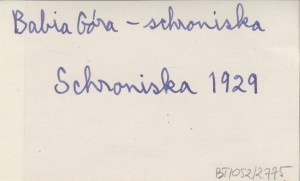 Babia Góra - schroniska
Schroniska 1929
BT/052/2795